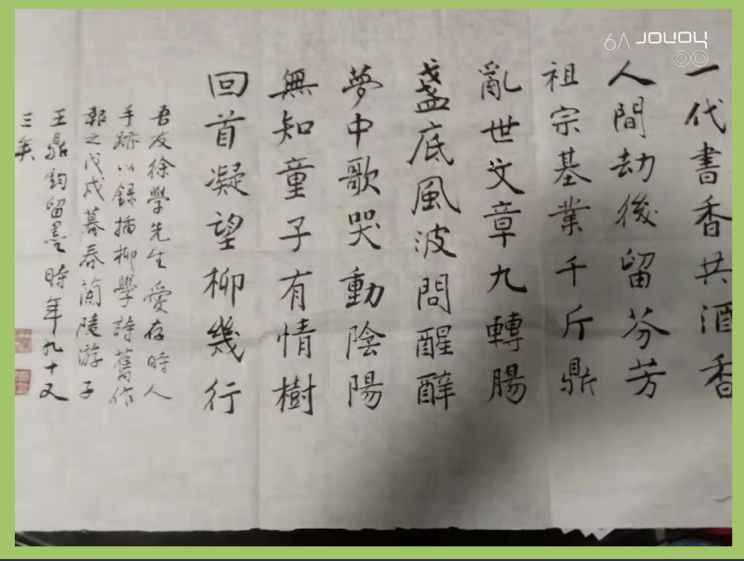 一代書香共酒香
人間劫後留芬芳
祖宗基業千斤鼎
亂世文章九轉腸
盞底風波問醒醉
夢中歌哭動陰陽
無知童子有情樹
回首凝望柳幾行
吾友徐學先生愛存時人
手跡以錄插柳學詩舊作
報之戊戌暮春蘭陵游子
王鼎鈞留墨時年九十又
三矣